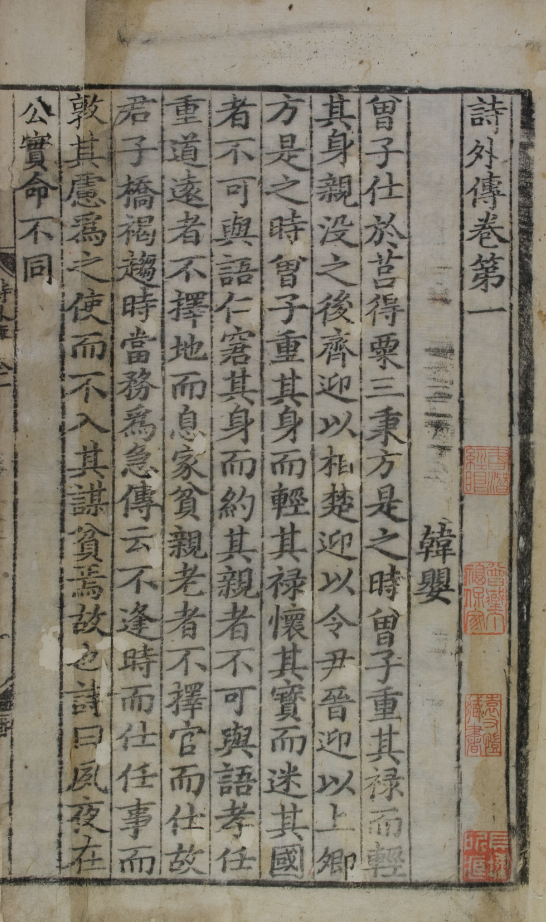 詩外傳卷第一
韓嬰
曾子仕於莒得粟三秉方是之時曾子重其禄而輕
其身親没之後齊迎以相楚迎以令尹晉迎以上卿
方是之時曾子重其身而輕其禄懷其寳而迷其國
者不可與語仁窘其身而約其親者不可與語孝任
重道遠者不擇地而息家貧親老者不擇官而仕故
君子橋褐趨時當務爲急傳云不逢時而仕任事而
敦其慮爲之使而不入其謀貧焉故也詩曰夙夜在
公實命不同